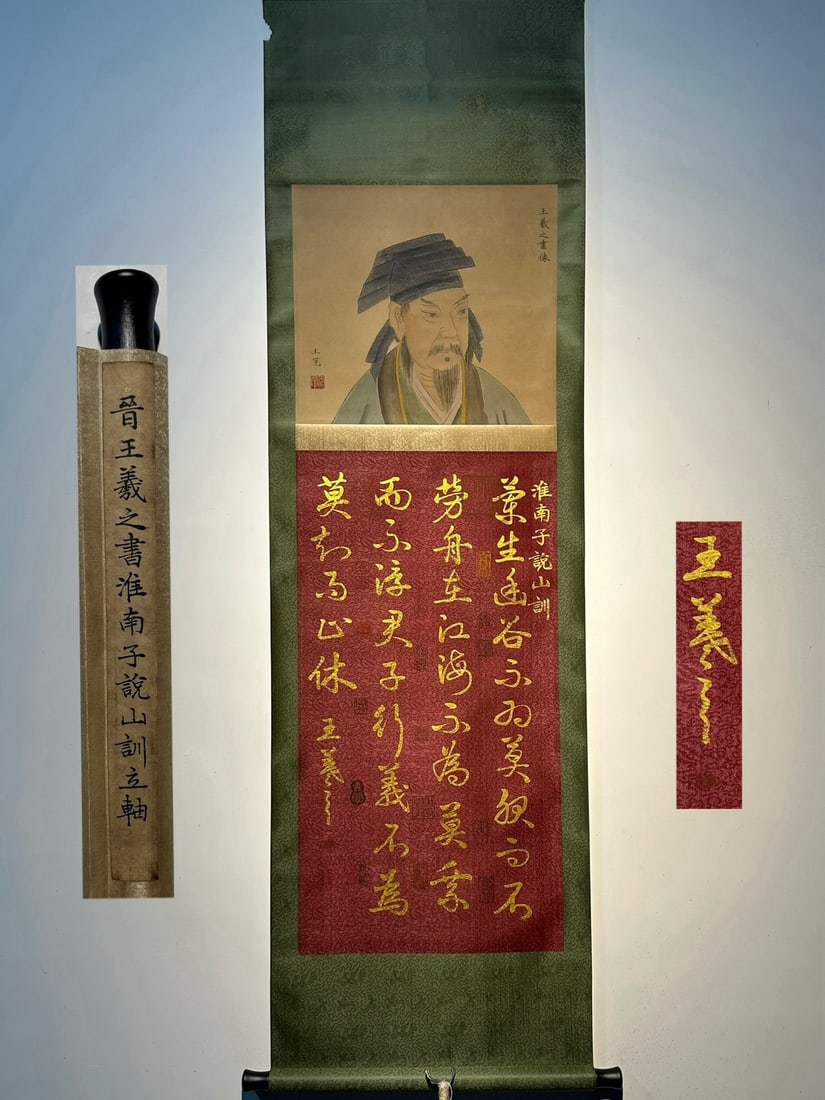 晉王羲之書淮南子說山訓立軸
王羲之畫像
淮南子說山訓
蘭生幽谷不為莫服而不
芳舟在江海不為莫乘
而不浮君子行義不為
莫知而止休
王羲之
王羲之